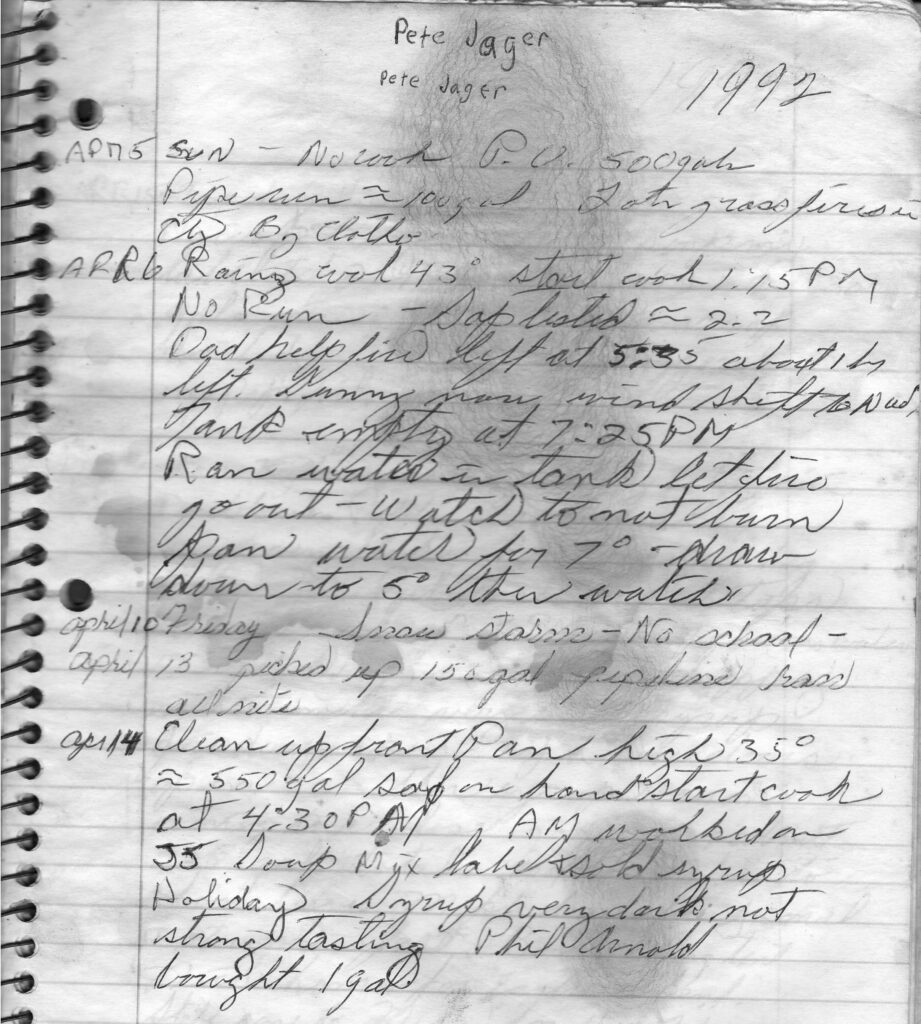 Pete Jager
Pete Jager
1992
APR 5 SUN - No cook P.U. 500 gals
Pipe run ≈ 100 gal grass fires in
By Clotho
APR 6 Rainy cool 43° start cook 1:15 PM
No Run - Sap tested ≈ 2.2
Dad help fire left at 5:35 about 1 hr
left. Sunny now wind shift to N
Tank empty at 7:25 PM
Ran water in tank let fire
go out - Watch to not burn
pan water for 7° - draw
down to 5° then watch
april 10 Friday Snow storm - No school -
april 13 picked up 150 gal pipeline ran
all nite
apr 14 Clean up front Pan high 35°
≈ 550 gal sap on hand start cook
at 4:30 PM AM worked on
Soup Mix label & sold syrup
Holiday Syrup very dark not
strong tasting Phil Arnold
bought 1 gal.